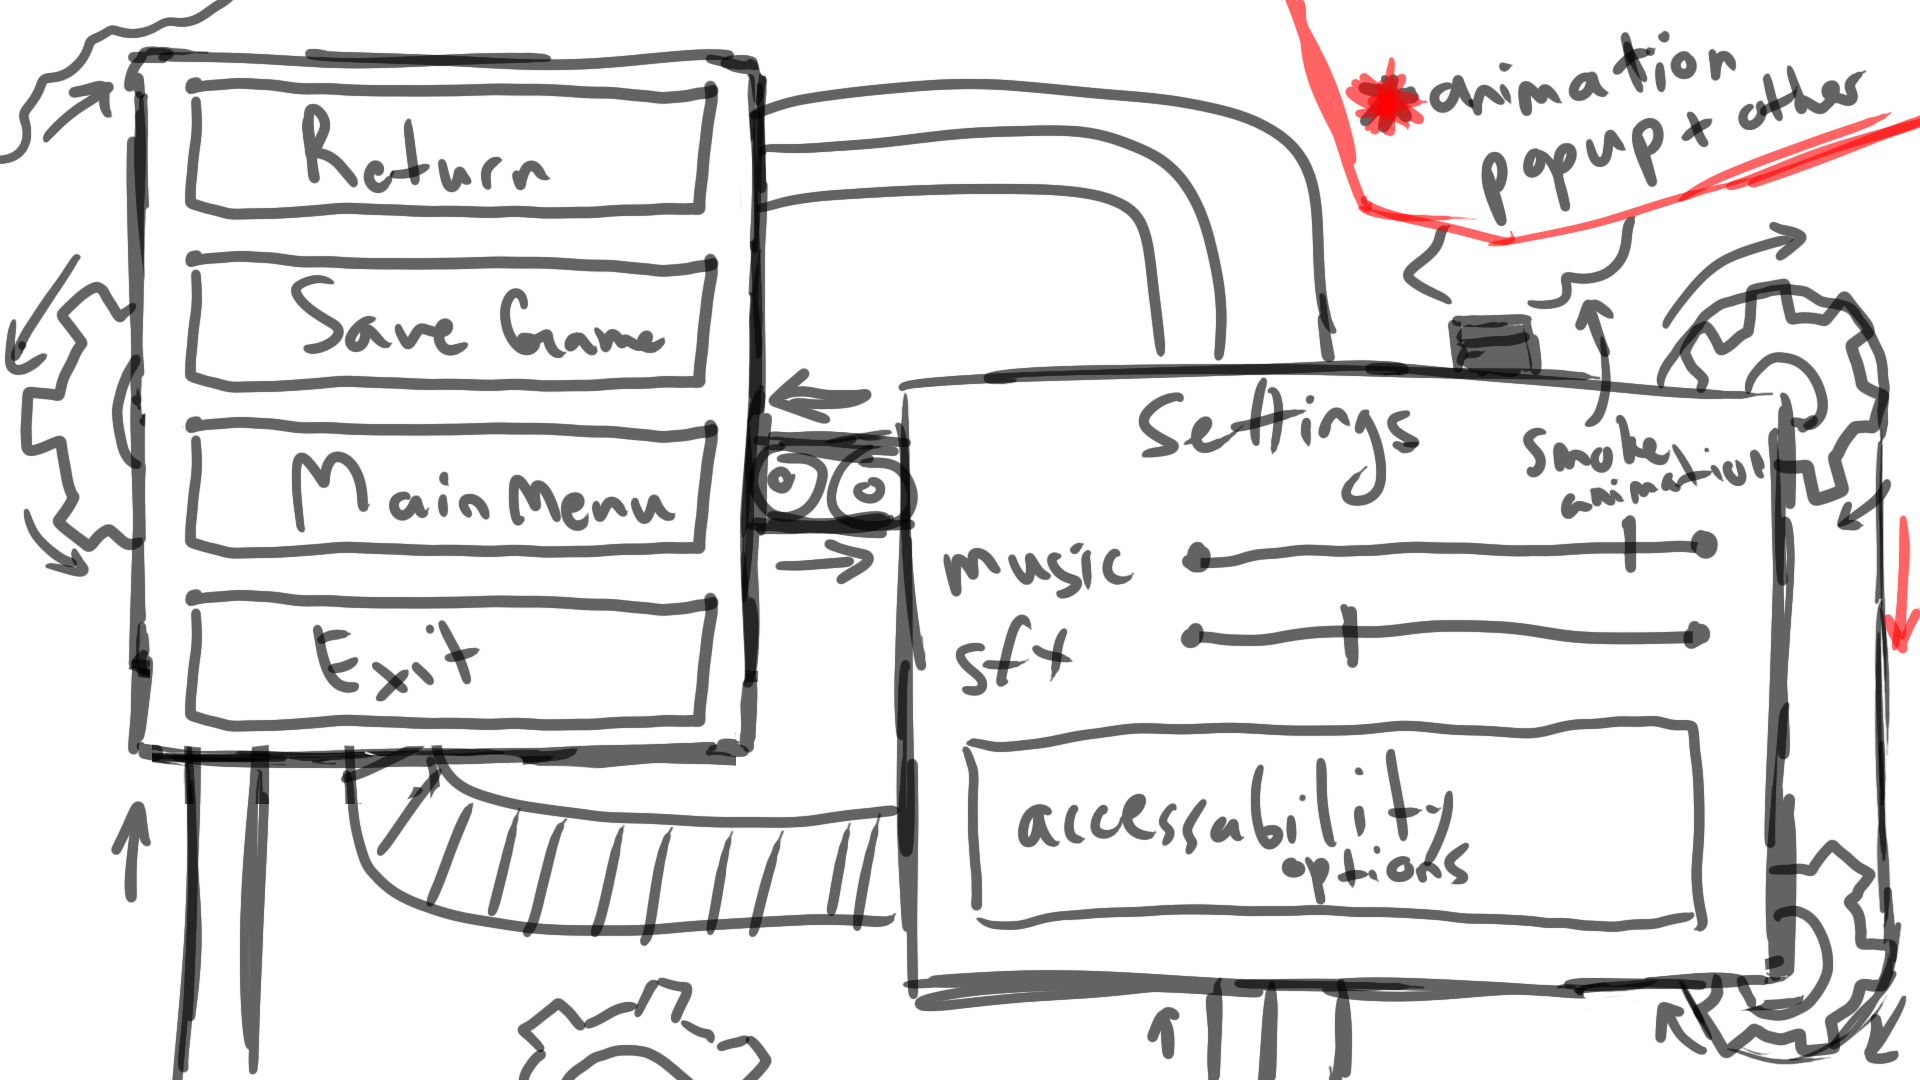 Return
Save Game
Main Menu
Exit
*animation
popup + other
Settings
smoke
animation
music
sfx
accessability
options